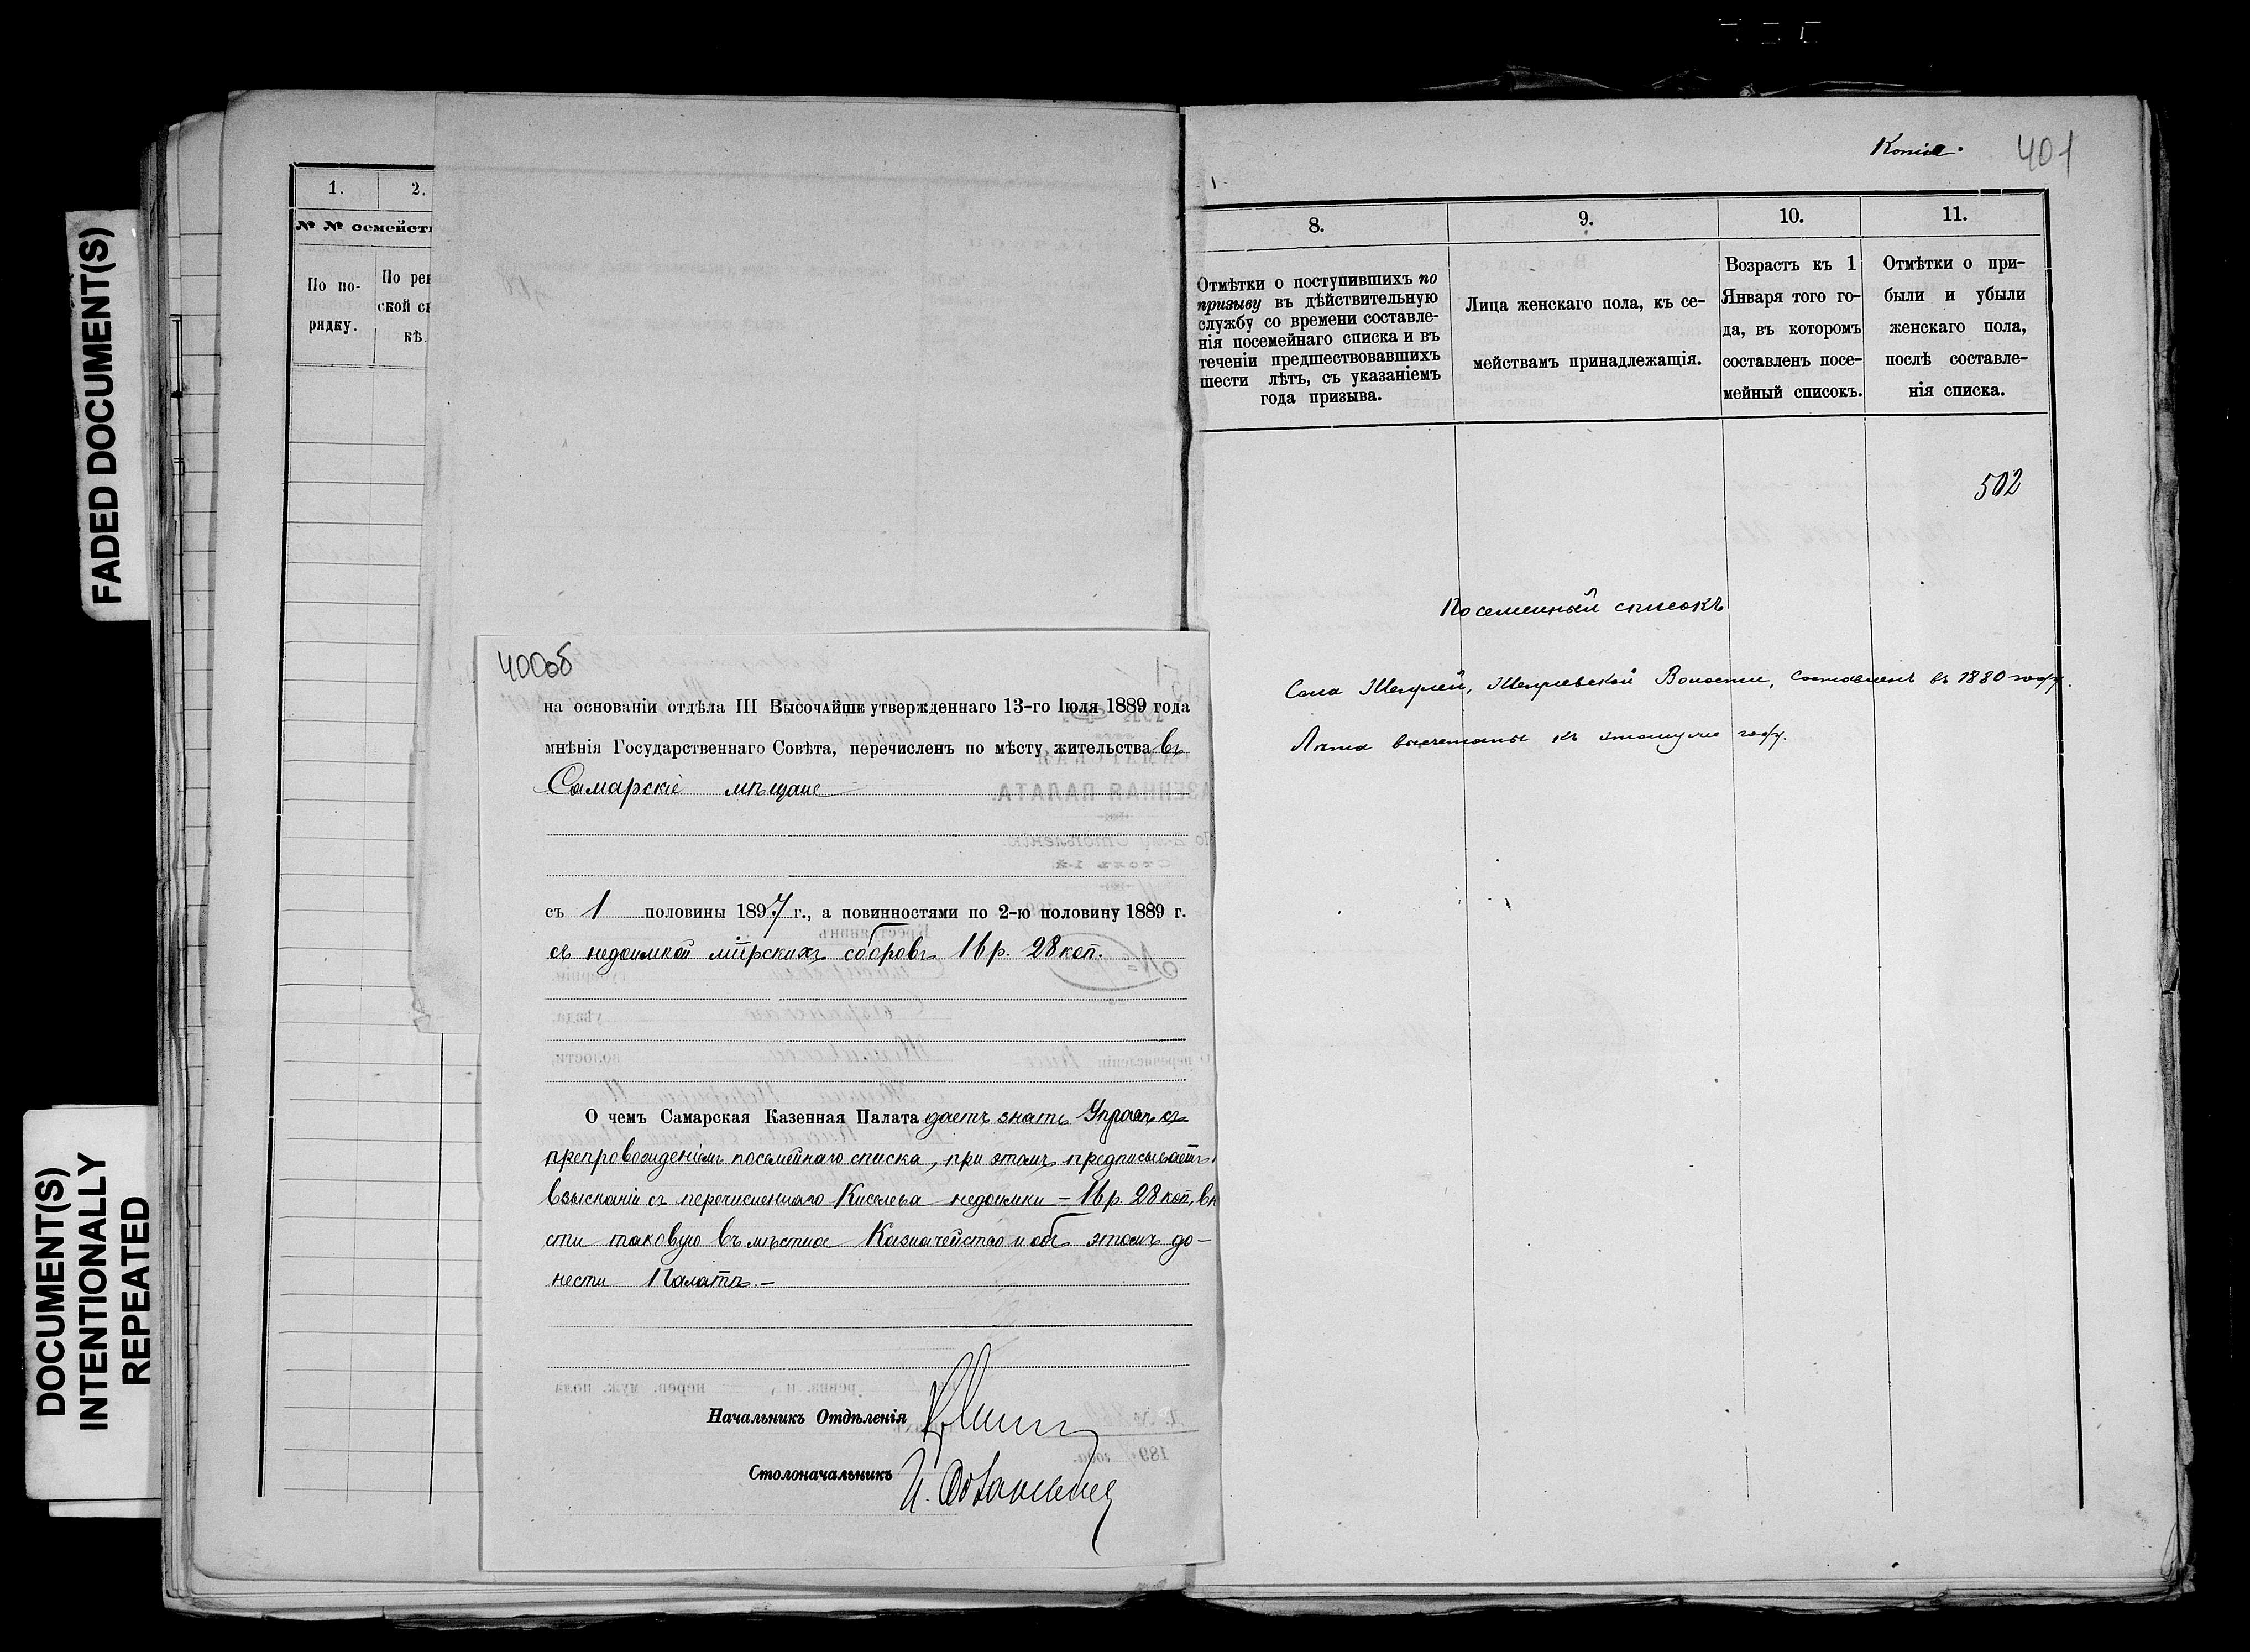 FADED DOCUMENT(S)
DOCUMENT(S)
INTENTIONALLY
REPEATED
1.
2.
№ № семейств
По по-
рядку.
По рев
ской ск
кѣ.
400об
на основаніи отдѣла III Высочайше утвержденнаго 13-го Іюля 1889 года
мнѣнія Государственнаго Совѣта, перечисленъ по мѣсту жительства въ
Самарскіе мѣщане
съ 1 половины 1897 г., а повинностями по 2-ю половину 1889 г.
съ недоимкой мірскихъ сборовъ 16 р. 28 коп.
О чемъ Самарская Казенная Палата даетъ знать Управѣ съ
препровожденіемъ посемейнаго списка, при этомъ предписываетъ
взысканіи съ перечисленнаго Киселева недоимки – 16 р. 28 коп, вн
сти таковую въ мѣстное Казначейство и объ этомъ до-
нести Палатѣ.–
Начальникъ Отдѣленія
Столоначальникъ
Копія.
401
8.
9.
10.
11.
Отмѣтки о поступившихъ по
призыву въ дѣйствительную
службу со времени составле-
нія посемейнаго списка и въ
теченіи предшествовавшихъ
шести лѣтъ, съ указаніемъ
года призыва.
Лица женскаго пола, къ се-
мействамъ принадлежащія.
Возрастъ къ 1
Января того го-
да, въ которомъ
составленъ посе-
мейный списокъ.
Отмѣтки о при-
были и убыли
женскаго пола,
послѣ составле-
нія списка.
502
Посемейный списокъ
Села Жегулей, Жегулевской Волости, составленъ въ 1880 году.
Лѣта высчетаны къ этому же году.